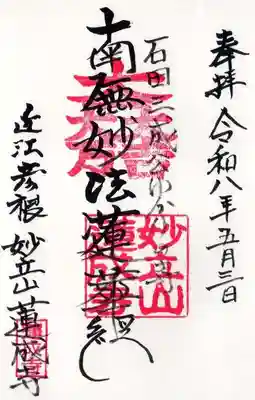 奉拝 令和八年五月三日
石田三成公ゆかり寺
南無妙法蓮華経
近江彦根 妙立山 蓮成寺
妙立山
蓮成寺